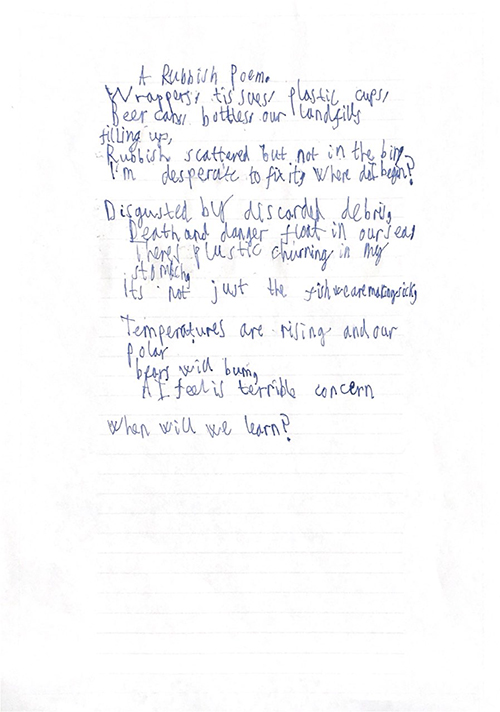 A Rubbish Poem.
Wrappers, tissues, plastic cups,
Beer cans, bottles, our landfills
filling up,
Rubbish scattered but not in the bin,
I'm desperate to fix it, where do I begin?
Disgusted by discarded debris,
Death and danger float in our seas
Theres plastic churning in my
stomach,
Its not just the fish we are making sick,
Temperatures are rising and our
polar
bears will burn,
Al I feel is terrible concern
When will we learn?